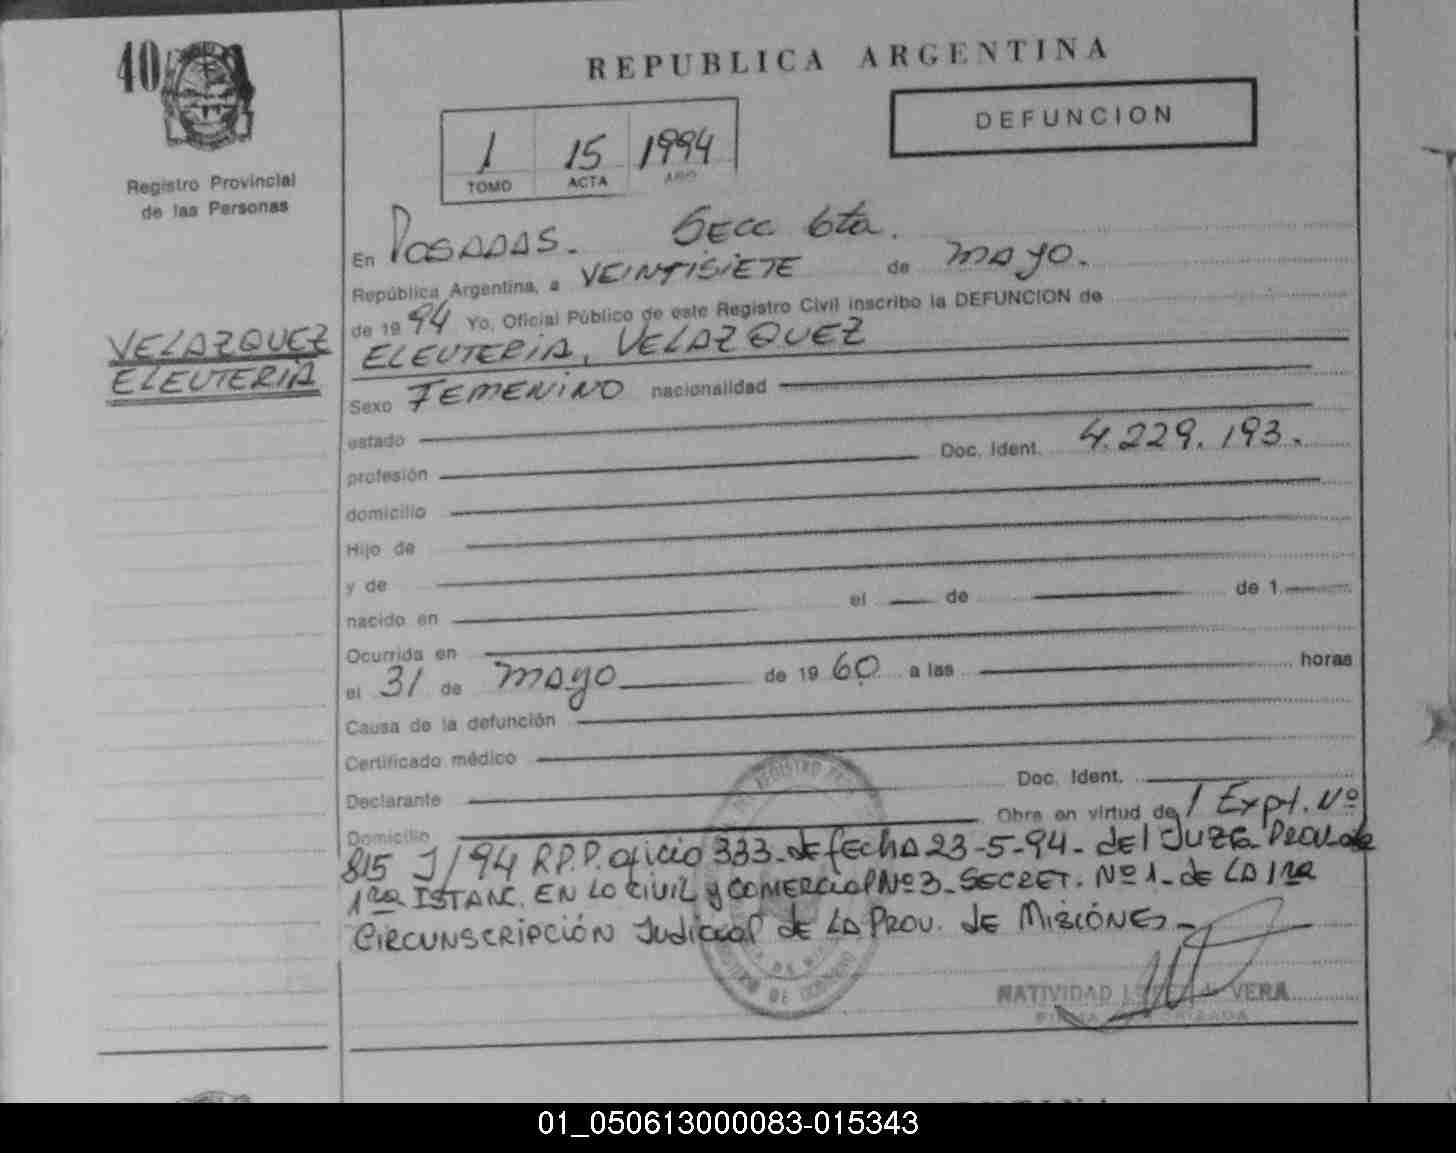 40
Registro Provincial
de las Personas
VELAZQUEZ
ELEUTERIA
REPUBLICA ARGENTINA
DEFUNCION
1 15 1994
TOMO ACTA AÑO
En POSADAS. Secc 6ta.
República Argentina, a VEINTISIETE de mayo.
de 1994 Yo, Oficial Público de este Registro Civil inscribo la DEFUNCION de
ELEUTERIA, VELAZQUEZ
Sexo FEMENINO nacionalidad
estado
profesión Doc. Ident. 4.229.193.
domicilio
Hijo de
y de
nacido en el de de 1
Ocurrida en
el 31 de mayo de 1960 a las horas
Causa de la defunción
Certificado médico
Declarante Doc. Ident.
Domicilio Obra en virtud de l Expt. Nº
815 J/94 R.P.P. oficio 333 de fecha 23-5-94- del Juzg. Prov. de
1ra ISTANC. EN LO CIVIL y COMERCIAL Nº 3- SECRET. Nº 1- de LA 1ra
CIRCUNSCRIPCIÓN Judicial de LA PROV. de MISIÓNES-
NATIVIDAD VERA
FIRMA AUTORIZADA
01_050613000083-015343